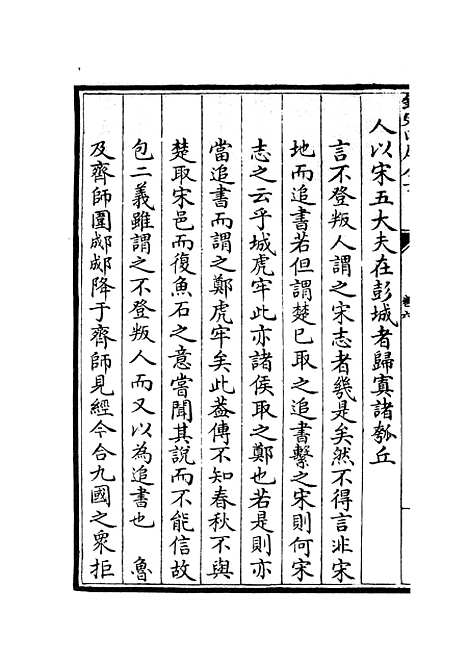 人以宋五大夫在彭城者歸寘諸瓠丘
言不登叛人謂之宋志者幾是矣然不得言非宋
地而追書若但謂楚已取之追書繫之宋則何宋
志之云乎城虎牢此亦諸侯取之鄭也若是則亦
當追書而謂之鄭虎牢矣此葢傳不知春秋不與
楚取宋邑而復魚石之意嘗聞其說而不能信故
包二義雖謂之不登叛人而又以為追書也　魯
及齊師圍郕郕降于齊師見經今合九國之衆拒